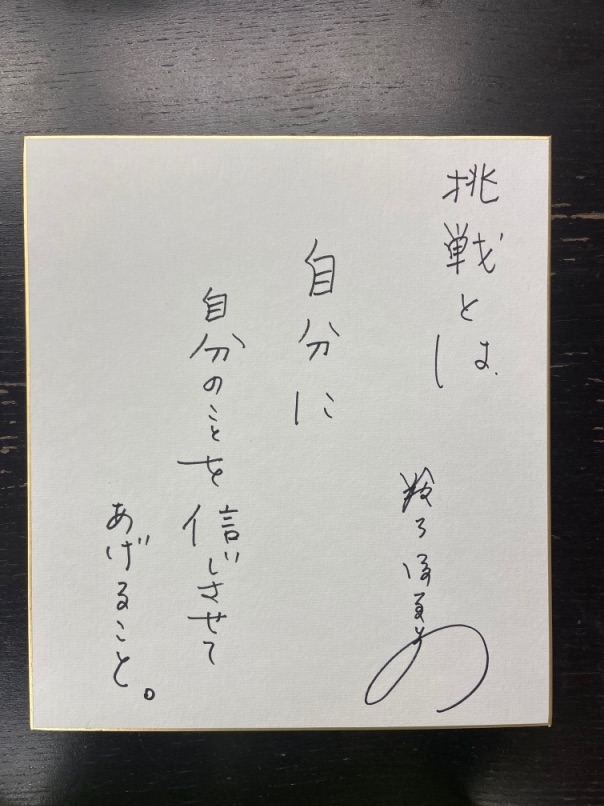 挑戦とは
自分に
自分のことを信じさせて
あげること。